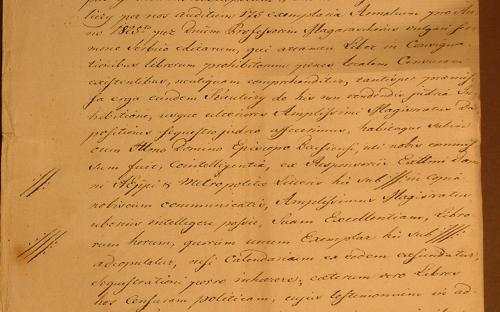 per nos auditum 175 exemplaria Annalium pro An-
no 1825to per Dnum Professorem Magarashevits vulgari ser-
mone Serbico editarum, qui attamen Liber in Consigna-
tionibus librorum prohibitorum penes localem Censuram
existentibus, neutiquam comprehenditur,
erga eundem de his non vendendis In-
hibitione, usque ulteriores Amplissimi Magistratus Di-
positiones sequestro judrio affecerimus, habitaque subin
cum Illmo Domino Episcopo Bacsiensi, uti nobis commis-
sum fuit, Cointelligentia, ex Responsoriis Exllmi Dom-
ni AEppi & Metropolitae Literis hic sub ://: copia
nobiscum communicatis, Amplissimus Magistratus
uberius intelligere posset, Suam Excellentiam, Libro-
rum horum, quorum unum Exemplar hic sub ://:
adcopulatur, nisi Calendarium ex iisdem exscindatur,
Sequestrationi porro inhaerere, caeterum vero Libros
hos Censuram politicam, cujus testimonium in ad-